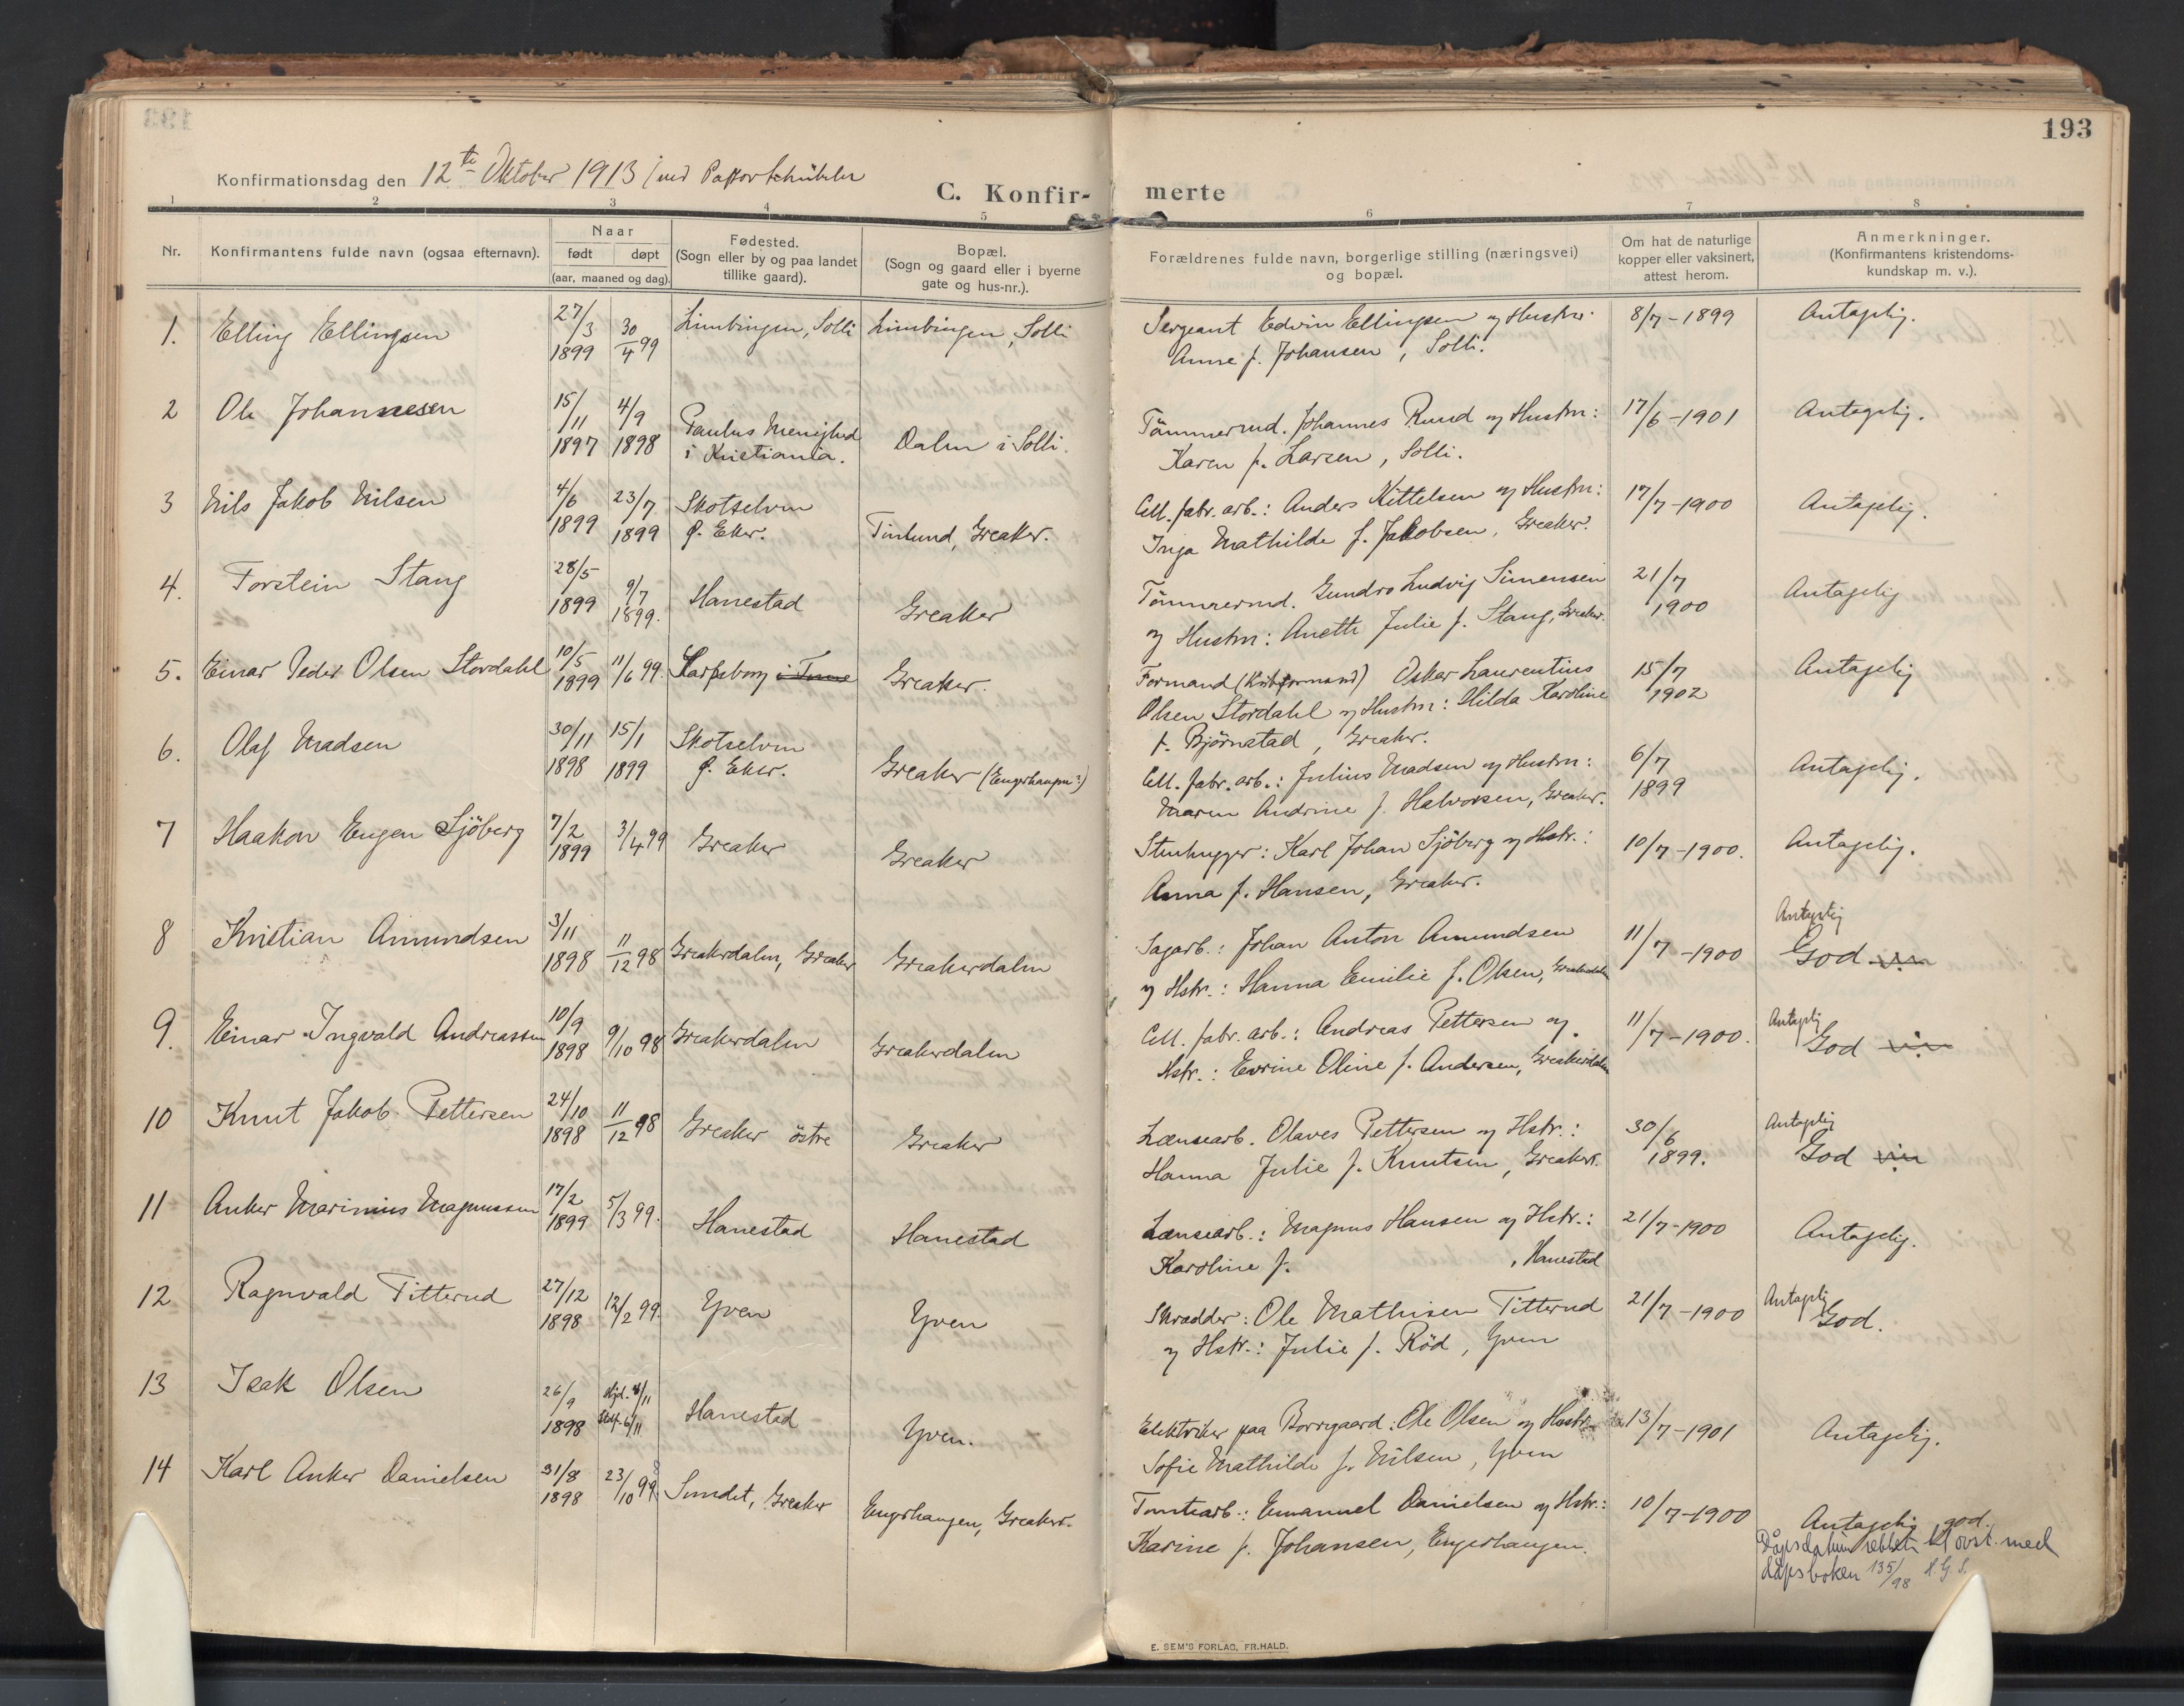 193
Konfirmationsdag den 12te Oktober 1913 (ved Pastor Schübeler
C. Konfir-merte
1 2 3 4 5 6 7 8
Nr.
Konfirmantens fulde navn (ogsaa efternavn).
Naar
født døpt
(aar, maaned og dag).
Fødested.
(Sogn eller by og paa landet
tillike gaard).
Bopæl.
(Sogn og gaard eller i byerne
gate og hus-nr.).
Forældrenes fulde navn, borgerlige stilling (næringsvei)
og bopæl.
Om hat de naturlige
kopper eller vaksinert,
attest herom.
Anmerkninger.
(Konfirmantens kristendoms-
kundskap m. v.).
1. Elling Ellingsen 27/3 1899 30/4 99 Limbingen, Solli Limbingen, Solli Sergeant Edvin Ellingsen og Hustru: 8/7-1899 Antagelig.
Anne f. Johansen, Solli.
2 Ole Johannesen 15/11 1897 4/9 1898 Paulus Menighed
i Kristiania. Dalen i Solli. Tömmermd. Johannes Ruud og Hustru: 17/6-1901 Antagelig.
Karen f. Larsen, Solli.
3 Nils Jakob Nilsen 4/6 1899 23/7 1899 Skotselven
Ø. Eker. Tinlund, Greaker. Cell. fabr. arb.: Anders Kittelsen og Hustru: 17/7-1900 Antagelig.
Inga Mathilde f. Jakobsen, Greaker.
4. Torstein Stang 28/5 1899 9/7 1899. Hanestad Greaker Tömmermd. Gundro Ludvig Simensen 21/7 1900 Antagelig
og Hustru: Anette Julie f. Stang, Greaker.
5. Einar Peder Olsen Stordahl 10/5 1899 11/6 99. Sarpsborg i Tune Greaker. Formand (Kubformand) Oskar Laurentius 15/7 1902 Antagelig
Olsen Stordahl og Hustru: Hilda Karoline
f. Bjørnstad, Greaker.
6. Olaf Madsen 30/11 1898 15/1 1899 Skotselven
Ø. Eker. Greaker (Engerhaugen?) Cell. fabr. arb.: Julius Madsen og Hustru: 6/7 1899 Antagelig.
Maren Andrine f. Halvorsen, Greaker.
7 Haakon Eugen Sjöberg 7/2 1899 3/4 99 Greaker Greaker Stenhugger: Karl Johan Sjöberg og Hstr.: 10/7-1900. Antagelig.
Anna f. Hansen, Greaker.
8 Kristian Amundsen 3/11 1898 11/12 98 Greakerdalen, Greaker Greakerdalen Sagarb.: Johan Anton Amundsen 11/7-1900 Antagelig
God
og Hstr.: Hanna Emilie f. Olsen, Greakerdalen
9. Einar Ingvald Andreassen 10/9 1898 9/10 98 Greakerdalen Greakerdalen Cell. fabr. arb.: Andreas Pettersen og 11/7-1900. Antagelig
God
Hstr.: Evrine Oline f. Andersen, Greakerdalen
10 Knut Jakob Pettersen 24/10 1898 11/12 98 Greaker östre Greaker Lænsearb. Olaves Pettersen og Hstr.: 30/6 1899. Antagelig
God
Hanna Julie f. Knutsen, Greaker.
11 Anker Marinius Magnussen 17/2 1899 5/3 99. Hanestad Hanestad Lænsearb.: Magnus Hansen og Hstr.: 21/7-1900 Antagelig.
Karoline f. , Hanestad
12 Ragnvald Titterud 27/12 1898 12/2 99. Yven Yven Skrædder: Ole Mathisen Titterud 21/7-1900 Antagelig
God.
og Hstr.: Julie f. Röd, Yven
13 Isak Olsen 26/9 1898 Hjd. 4/11
Stf. 6/11 Hanestad Yven. Elektriker paa Borregaard: Ole Olsen og Hustr. 13/7-1901 Antagelig.
Sofie Mathilde f. Nilsen, Yven
14 Karl Anker Danielsen 31/8 1898 23/10 998 Sundet, Greaker Engerhaugen, Greaker. Tomtearb.: Emanuel Danielsen og Hstr.: 10/7-1900 Antagelig god.
Karine f. Johansen, Engerhaugen.
Dåpsdatum rettet i ovst. med
dåpsboken 135/98 S.G.S.
E. SEM'S FORLAG, FR.HALD.